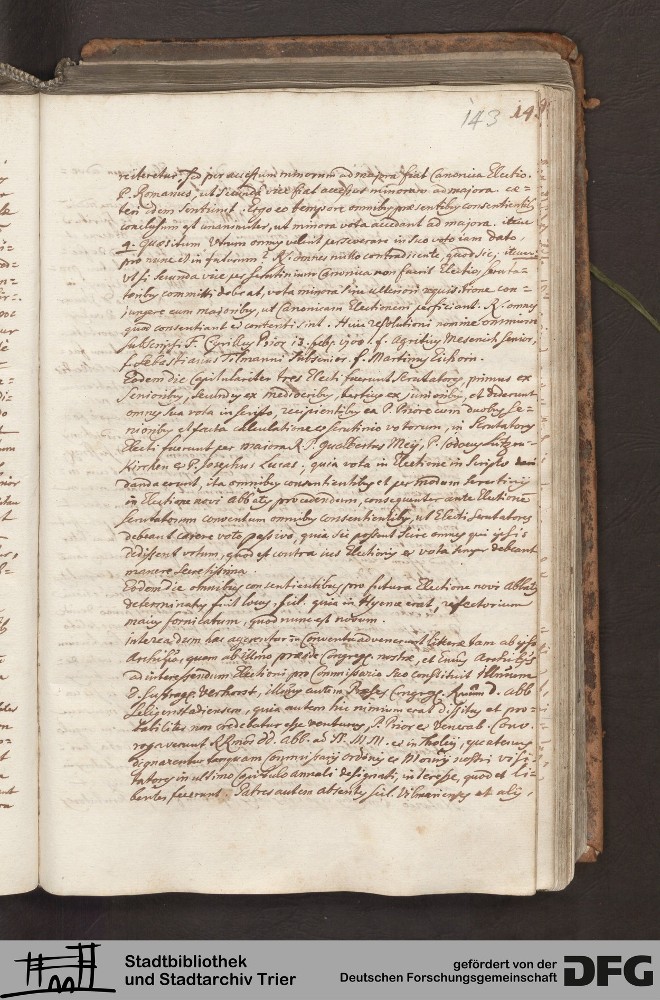 143 149
reiteretur, sed per accessum minorum ad majora fiat Canonica Electio.
P. Romanus, ut secunda vice fiat accessus minorum ad majora. ce-
teri idem sentiunt. Ergo eo tempore omnibus praesentibus consentientibus
conclusum est unanimiter, ut minora vota accedant ad majora. item
4. quaesitum utrum omnes velint perseverare in suo voto iam dato,
pro nunc et in futurum? R. omnes nullo contradicente, quod sic, item
ut si secunda vice per scrutinium Canonica non fuerit Electio, scruta-
toribus committi debeat, vota minora sine ulteriori requisitione con-
jungere cum majoribus, ut Canonicam Electionem perficiant. R. omnes
quod consentiant et contenti sint. Huic resolutioni nomine omnium
subscripsi F. Cyrillus Prior 13 feb. 1700. f. Agritius Mesenich senior,
f. Sebastianus Tilmanni Subsenior. f. Martinus Eichorn.
Eodem die Capitulariter tres Electi fuerunt Scrutatores, primus ex
Senioribus, secundus ex mediocribus, tertius ex junioribus, et dederunt
omnes sua vota in scripto, recipientibus ea P. Priore cum duobus se-
nioribus et facta calculatione et scrutinio votorum, in Scrutatores
Electi fuerunt per majora R. P. Gualbertus Meij, P. Iodocus
kirchen et P. Josephus Lucas; quia vota in Electione in scriptis
danda erunt, ita omnibus consentientibus et per modum scrutinij
in Electione novi Abbatis procedendum, consequenter ante Electione
Scrutatorum conventum omnibus consentientibus, ut Electi Scrutatores
debeant carere voto passivo, quia sic possent scire omnes qui ipsis
dedissent votum, quod est contra ius Electionis et vota semper debeant
manere secretissima.
Eodem die omnibus consentientibus pro futura Electione novi Abbatis
determinatus fuit locus, scil. quia in Hyeme erat, refectorium
maius fornicatum, quod nunc est novum.
interea dum haec agerentur in Conventu advenerunt litterae tam ab ipso
Archiepo, quam ab illmo praeside Congreg. nostrae, et Emus Archiepus
ad interessendum Electioni pro Commissario suo constituit illmum
D. Suffrag. Verhorst, illmus autem Praeses Congreg. Rmum D. Abb.
Seligenstadiensem, quia autem hic nimium erat dissitus et pro-
babiliter non credebatur esse venturus, P. Prior et Venerab. Conv.
rogaverunt RRmos DD. Abb. ad St. M. M. et in Tholey, quatenus
dignarentur tanquam Commissarij ordinis et Monrij nostri visi-
tatores in ultimo Capitulo annali designati, interesse, quod et li-
benter fecerunt. Patres autem absentes scil. Vilmarienses et alij,
Stadtbibliothek
und Stadtarchiv Trier
gefördert von der
Deutschen Forschungsgemeinschaft
DFG